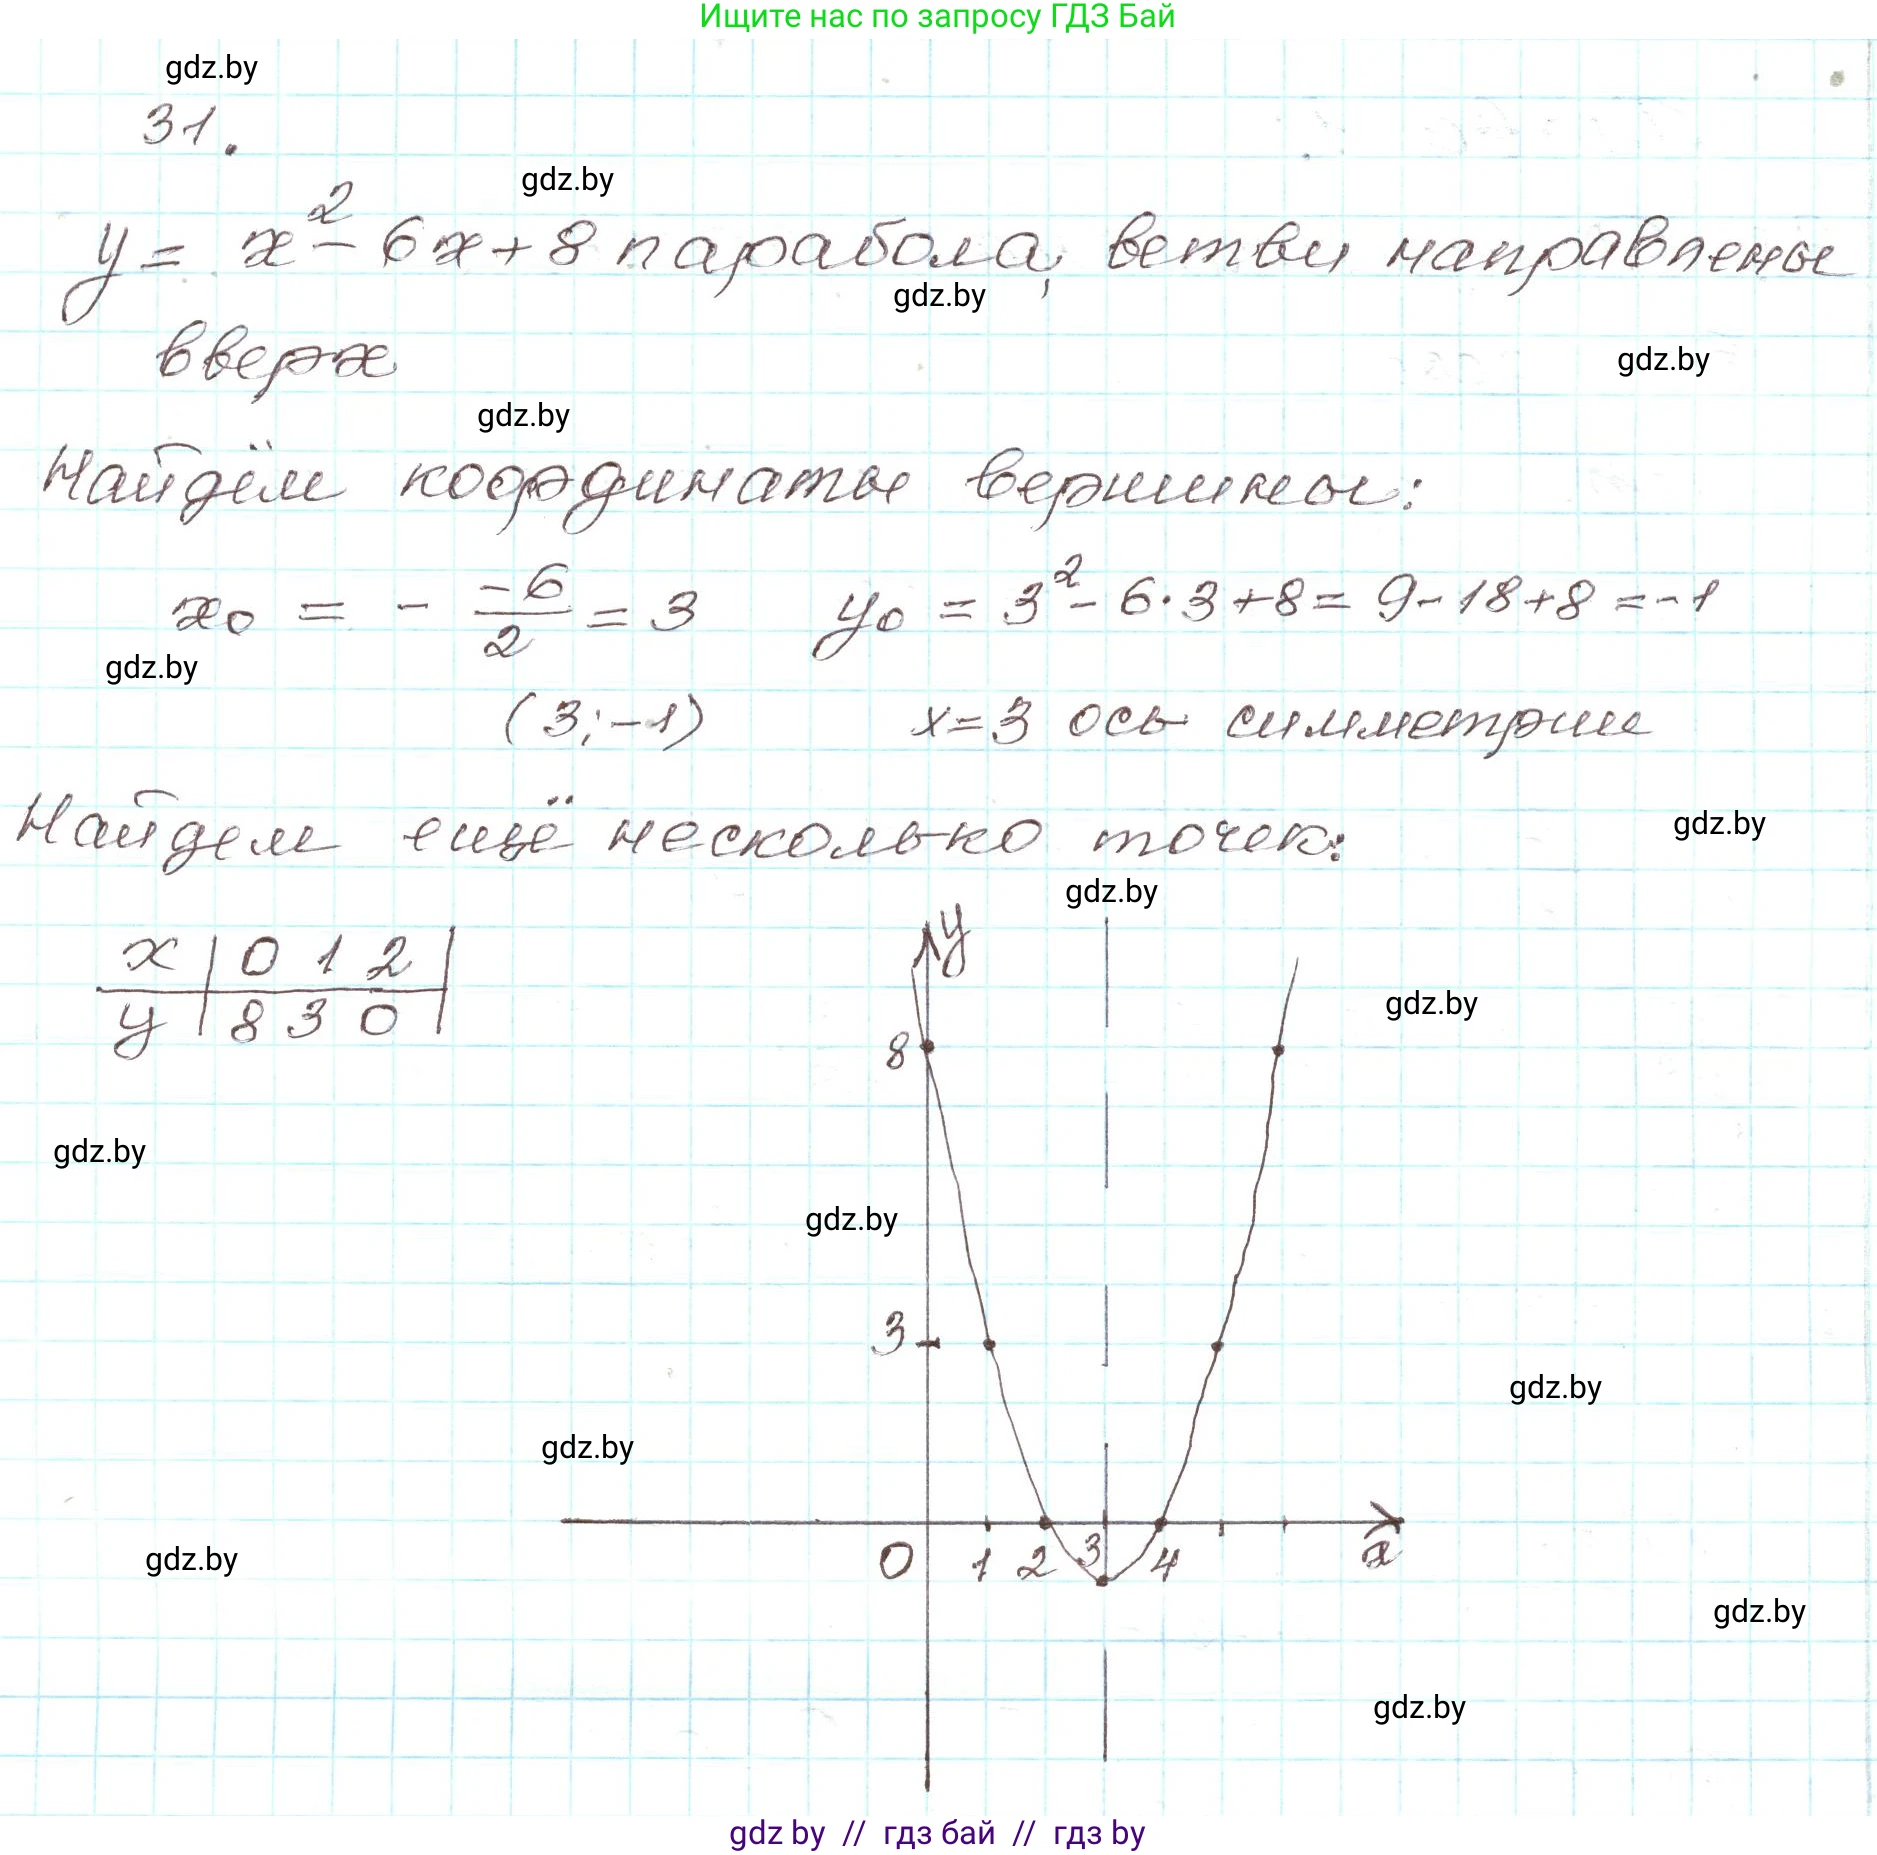 Ищите нас по запросу ГДЗ Бай
gdz.by
31.
gdz.by
y = x² - 6x + 8 парабола, ветви направлены
gdz.by
вверх
gdz.by
gdz.by
Найдём координаты вершины:
x₀ = - -6/2 = 3 y₀ = 3² - 6·3 + 8 = 9 - 18 + 8 = -1
gdz.by
(3; -1) x = 3 ось симметрии
Найдем ещё несколько точек:
gdz.by
gdz.by
x | 0 1 2 |
y | 8 3 0 |
y
gdz.by
8
gdz.by
gdz.by
3
gdz.by
gdz.by
0 1 2 3 4 x
gdz.by
gdz.by
gdz.by
gdz by // гдз бай // гдз by